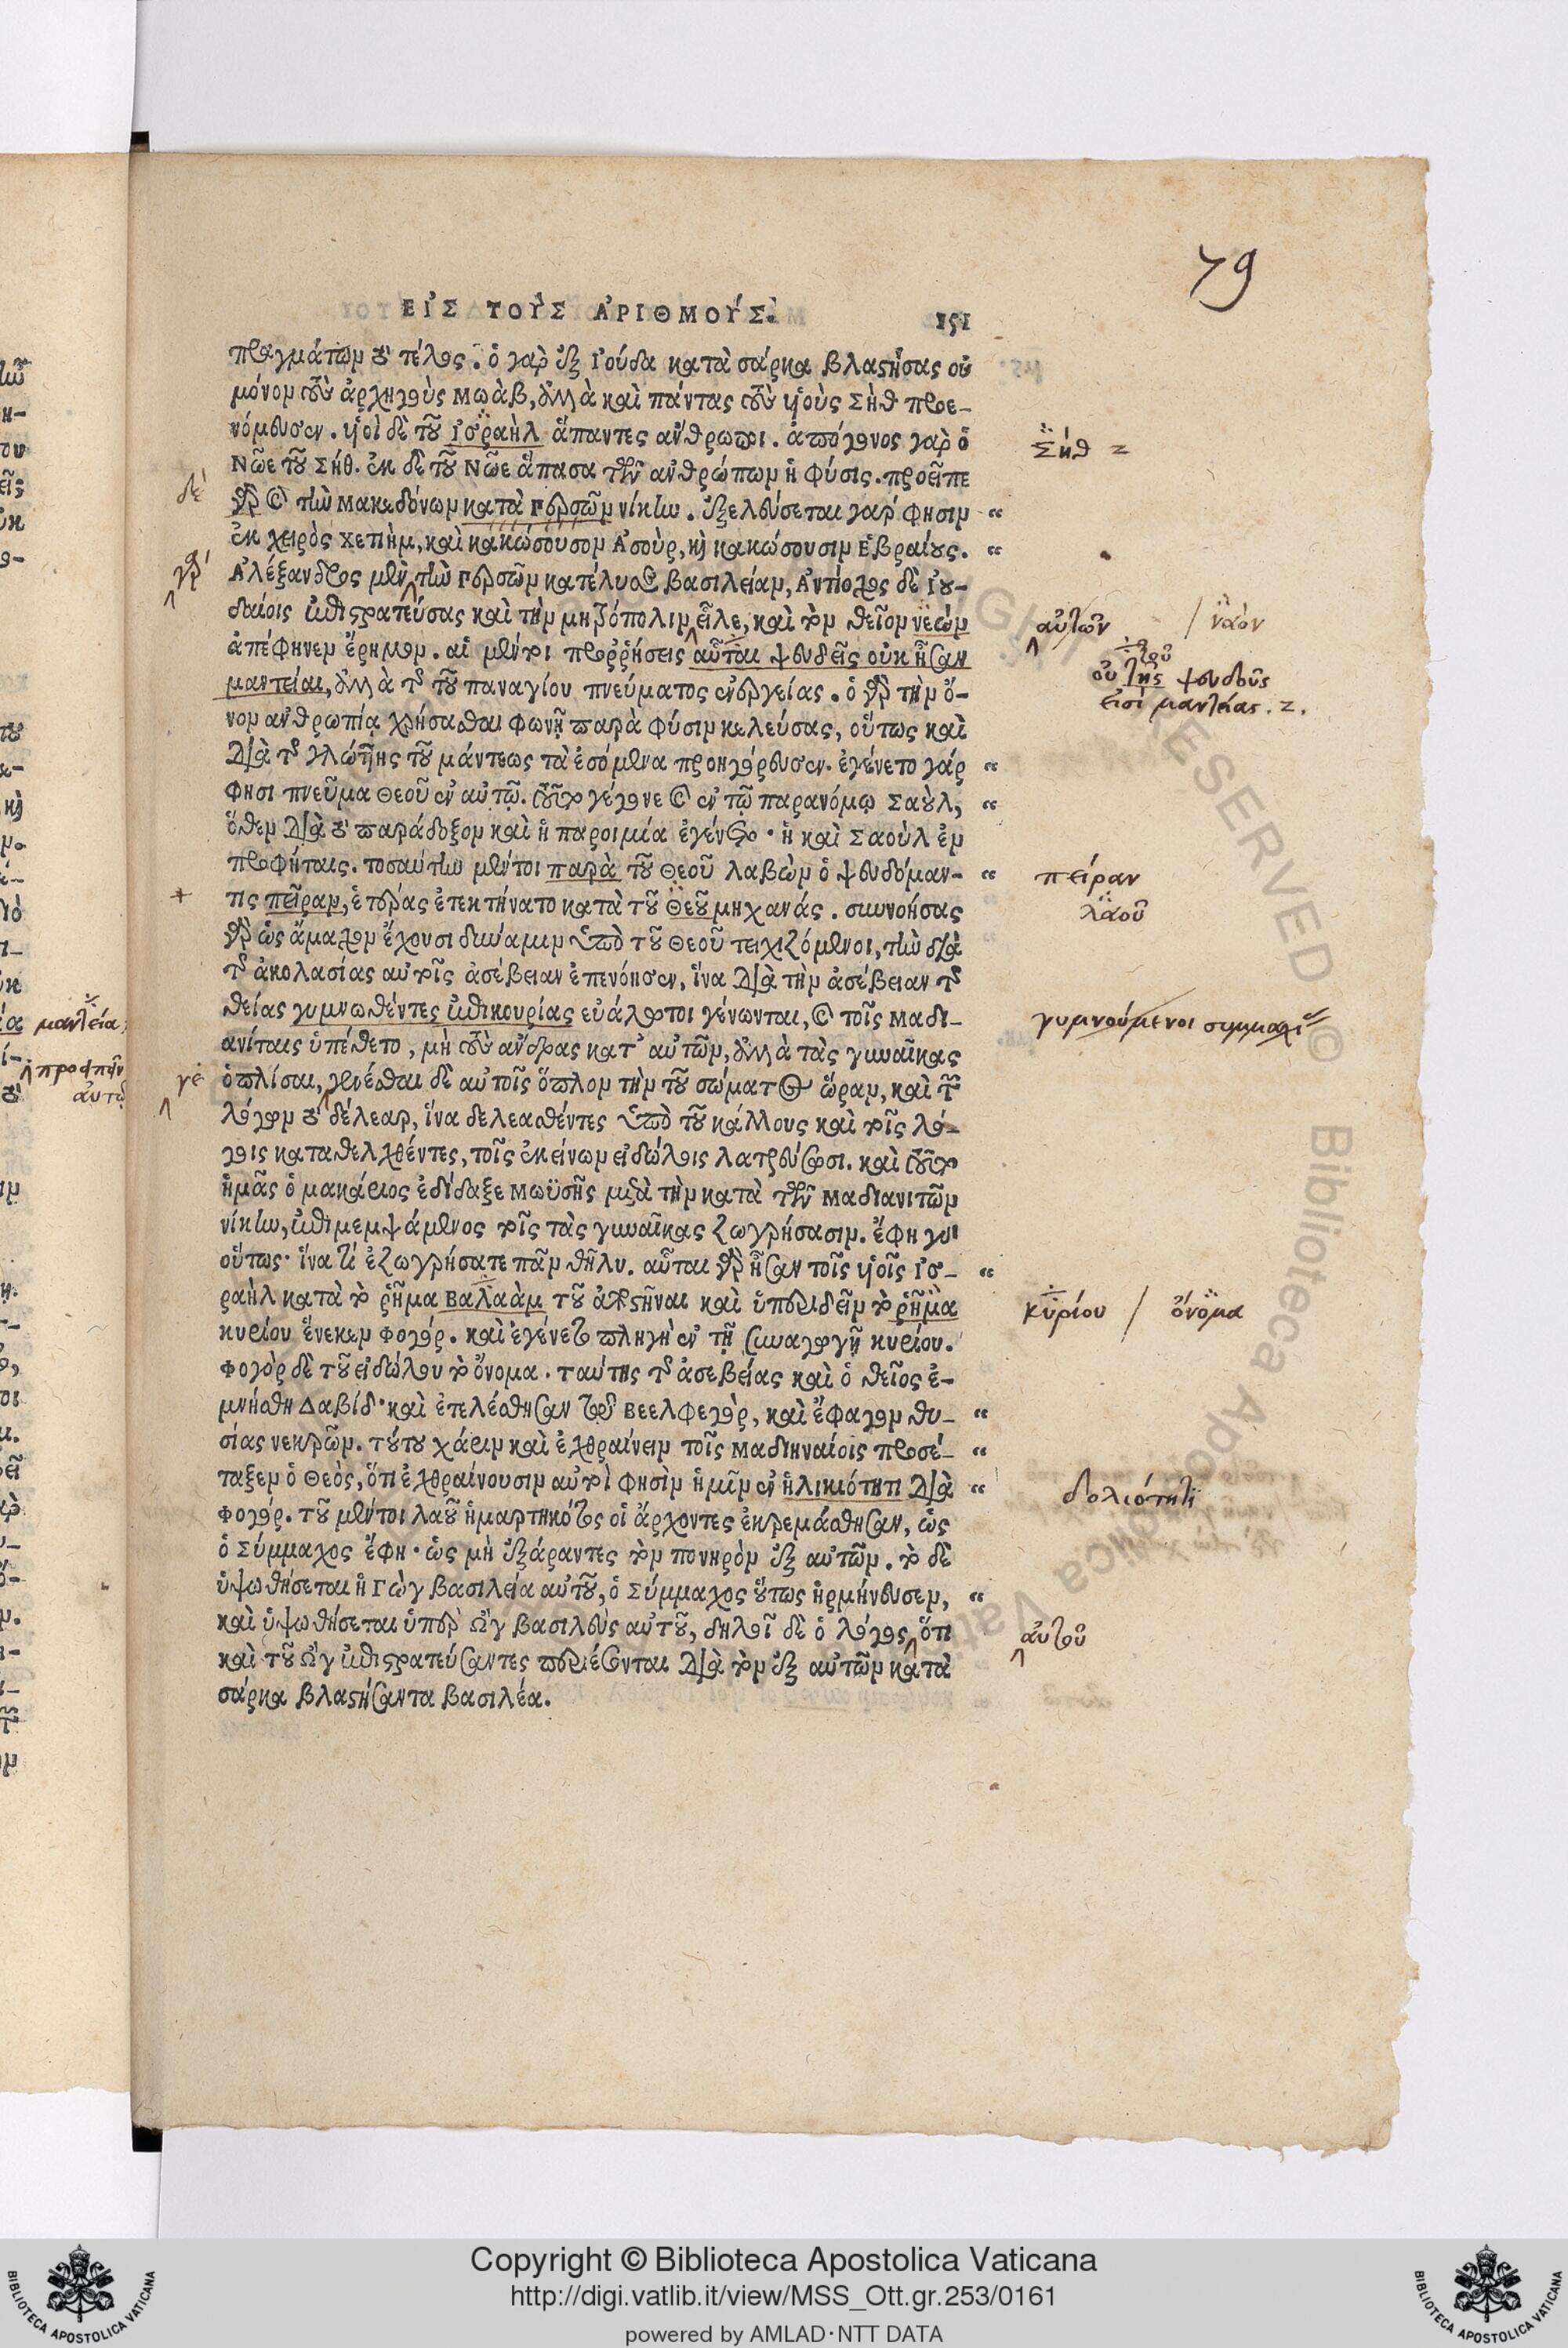 79
ΕἸΣ ΤΟῪΣ ἈΡΙΘΜΟΎΣ. 151
πραγμάτων τὸ τέλος. ὁ γὰρ ἐξ Ἰούδα κατὰ σάρκα βλαστήσας οὐ
μόνον τοὺς ἀρχηγοὺς Μωὰβ, ἀλλὰ καὶ πάντας τοὺς υἱοὺς Σὴθ προε-
νόμευσεν. υἱοὶ δὲ τοῦ Ἰσραὴλ ἅπαντες ἄνθρωποι. ἀπόγονος γὰρ ὁ
Σήθ z
Νῶε τοῦ Σήθ. ἐκ δὲ τοῦ Νῶε ἅπασα τῶν ἀνθρώπων ἡ φύσις. προεῖπε
δὲ
γὰρ καὶ τὴν Μακεδόνων κατὰ Περσῶν νίκην. ἐξελεύσεται γάρ φησιν “
ἐκ χειρὸς Χεπιὴμ, καὶ κακώσουσον Ἀσοὺρ, καὶ κακώσουσιν Ἑβραίους. “
γὰρ
Ἀλέξανδρος μὲν τὴν Περσῶν κατέλυσε βασιλείαν, Ἀντίοχος δὲ Ἰου-
δαίοις ἐπιστρατεύσας καὶ τὴν μητρόπολιν εἷλε, καὶ τὸν θεῖον νεὼν
αὐτῶν / ναὸν
ἀπέφηνεν ἔρημον. αἱ μέντοι προῤῥήσεις αὗται ψευδεῖς οὐκ ἦσαν
οὐ τῆς ψευδοῦς
μαντείαι, ἀλλὰ τῆς τοῦ παναγίου πνεύματος ἐνεργείας. ὁ γὰρ τὴν ὄ-
εἰσὶ μαντείας. z.
νον ἀνθρωπίᾳ χρήσασθαι φωνῇ παρὰ φύσιν κελεύσας, οὕτως καὶ
διὰ τῆς γλώττης τοῦ μάντεως τὰ ἐσόμενα προηγόρευσεν. ἐγένετο γάρ “
φησι πνεῦμα Θεοῦ ἐν αὐτῷ. τοῦτο γέγονε καὶ ἐν τῷ παρανόμῳ Σαοὺλ, “
ὅθεν διὰ τὸ παράδοξον καὶ ἡ παροιμία ἐγένετο· ἢ καὶ Σαοὺλ ἐν
προφήταις. τοσαύτην μέντοι παρὰ τοῦ Θεοῦ λαβὼν ὁ ψευδόμαν- “
πείραν
τις πεῖραν, ἑτέρας ἐτεκτήνατο κατὰ τοῦ Θεοῦ μηχανάς. συννοήσας
λαοῦ
γὰρ ὡς ἄμαχον ἔχουσι δύναμιν ὑπὸ τοῦ Θεοῦ τειχιζόμενοι, τὴν διὰ
τῆς ἀκολασίας αὐτοῖς ἀσέβειαν ἐπενόησεν, ἵνα διὰ τὴν ἀσέβειαν τῆς
θείας γυμνωθέντες ἐπικουρίας εὐάλωτοι γένωνται, καὶ τοῖς Μαδι-
γυμνούμενοι συμμαχί
ανίταις ὑπέθετο, μὴ τοὺς ἄνδρας κατ' αὐτῶν, ἀλλὰ τὰς γυναῖκας
γε
ὁπλίσαι, γενέσθαι δὲ αὐτοῖς ὅπλον τὴν τοῦ σώματος ὥραν, καὶ τῶν
λόγων τὸ δέλεαρ, ἵνα δελεασθέντες ὑπὸ τοῦ κάλλους καὶ τοῖς λό-
γοις καταθελχθέντες, τοῖς ἐκείνων εἰδώλοις λατρεύσωσι. καὶ τοῦτο
ἡμᾶς ὁ μακάριος ἐδίδαξε Μωϋσῆς μετὰ τὴν κατὰ τῶν Μαδιανιτῶν
νίκην, ἐπιμεμψάμενος τοῖς τὰς γυναῖκας ζωγρήσασιν. ἔφη γὰρ
οὕτως· ἵνα τί ἐζωγρήσατε πᾶν θῆλυ. αὗται γὰρ ἦσαν τοῖς υἱοῖς Ἰσ- “
ραὴλ κατὰ τὸ ῥῆμα Βαλαὰμ τοῦ ἀποστῆναι καὶ ὑπεριδεῖν τὸ ῥῆμα
κυρίου / ὄνομα
κυρίου ἕνεκεν Φογόρ. καὶ ἐγένετο πληγὴ ἐν τῇ συναγωγῇ κυρίου.
Φογὸρ δὲ τοῦ εἰδώλου τὸ ὄνομα. ταύτης τῆς ἀσεβείας καὶ ὁ θεῖος ἐ-
μνήσθη Δαβίδ· καὶ ἐτελέσθησαν τῷ Βεελφεγὸρ, καὶ ἔφαγον θυ- “
σίας νεκρῶν. τούτου χάριν καὶ ἐχθραίνειν τοῖς Μαδιηναίοις προσέ- “
ταξεν ὁ Θεὸς, ὅτι ἐχθραίνουσιν αὐτοὶ φησὶν ἡμῖν ἐν ἡλικιότητι διὰ “
δολιότητι
Φογόρ. τοῦ μέντοι λαοῦ ἡμαρτηκότος οἱ ἄρχοντες ἐκρεμάσθησαν, ὡς
ὁ Σύμμαχος ἔφη· ὡς μὴ ἐξάραντες τὸν πονηρὸν ἐξ αὐτῶν. τὸ δὲ
ὑψωθήσεται ἡ Γὼγ βασιλεία αὐτοῦ, ὁ Σύμμαχος οὕτως ἡρμήνευσεν, “
καὶ ὑψωθήσεται ὑπὲρ Ὢγ βασιλεὺς αὐτοῦ, δηλοῖ δὲ ὁ λόγος, ὅτι
αὐτοῦ
καὶ τοῦ Ὢγ ἐπιστρατεύσαντες περιέσονται διὰ τὸν ἐξ αὐτῶν κατὰ
σάρκα βλαστήσαντα βασιλέα.
μαντεία
προειπεῖν
αὐτῷ
Copyright © Biblioteca Apostolica Vaticana
http://digi.vatlib.it/view/MSS_Ott.gr.253/0161
powered by AMLAD·NTT DATA
BIBLIOTECA APOSTOLICA VATICANA
BIBLIOTECA APOSTOLICA VATICANA